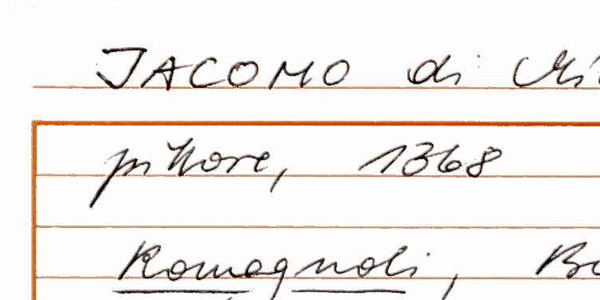 JACOMO di Mi
pittore, 1368
Romagnoli, B